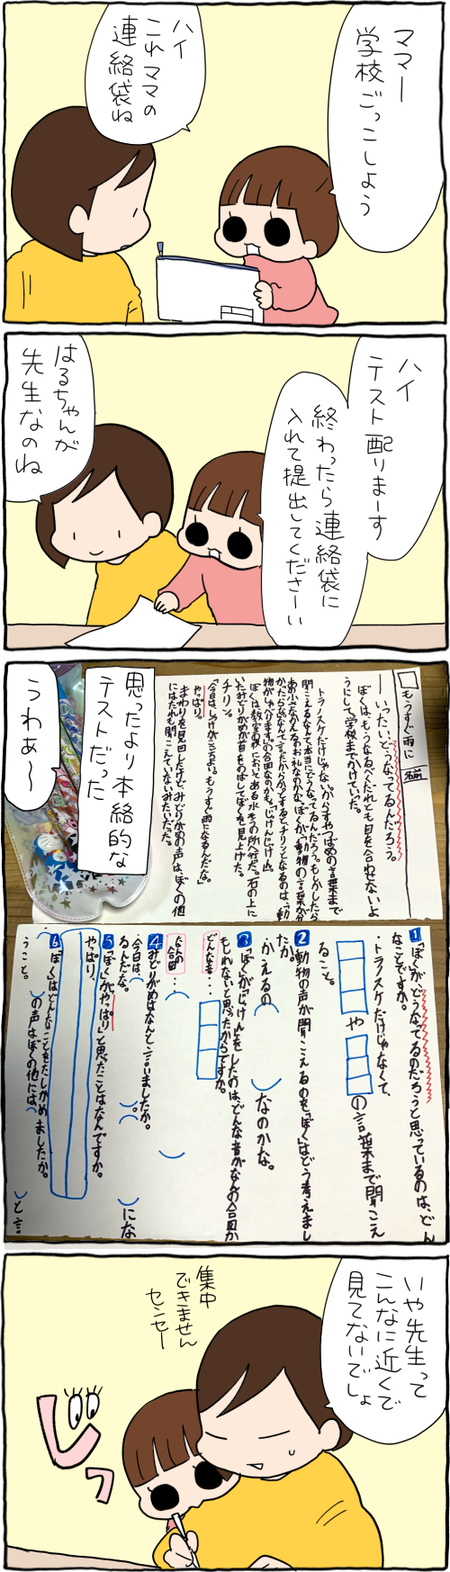 ママー
学校ごっこしよう
ハイ
これママの
連絡袋ね
ハイ
テスト配りまーす
終わったら連絡袋に
入れて提出してくださーい
はるちゃんが
先生なのね
もうすぐ雨に
名前
いったい、どうなってるんだろう。
ぼくは、もうなるべくだれとも目を合わせないよ
うにして、学校までかけていった。
トラノスケだけじゃない。
チリン。
「今日は、しっけがきそうだ。もうすぐ雨になるんだな。」
やっぱり。
まわりを見回したけど、みどりがめの声は、ぼくの他
にはだれも聞こえていないみたいだった。
思ったより本格的な
テストだった
うわぁ〜
1 「ぼく」が、どうなってるのだろうと思っているのは、どん
なことですか。
・トラノスケだけじゃなくて、
や
の言葉まで聞こえ
ること。
2 動物の声が聞こえるのを、「ぼく」はどう考えまし
たか。
かえるの
なのかな。
3 「ぼく」が「じっけん」をしたのは、どんな音がなんの合図か
もしれないと思ったからですか。
どんな音…
なんの合図…
4 みどりがめはなんと言いましたか。
・今日は、
にな
るんだな。
5 「ぼく」が「やっぱり」と思ったことはなんですか。
やっぱり、
6 「ぼく」はどんなことをたしかめましたか。
の声はぼくの他には、
と言
うこと。
いや先生って
こんなに近くで
見てないでしょ
集中
できません
センセー
じっ